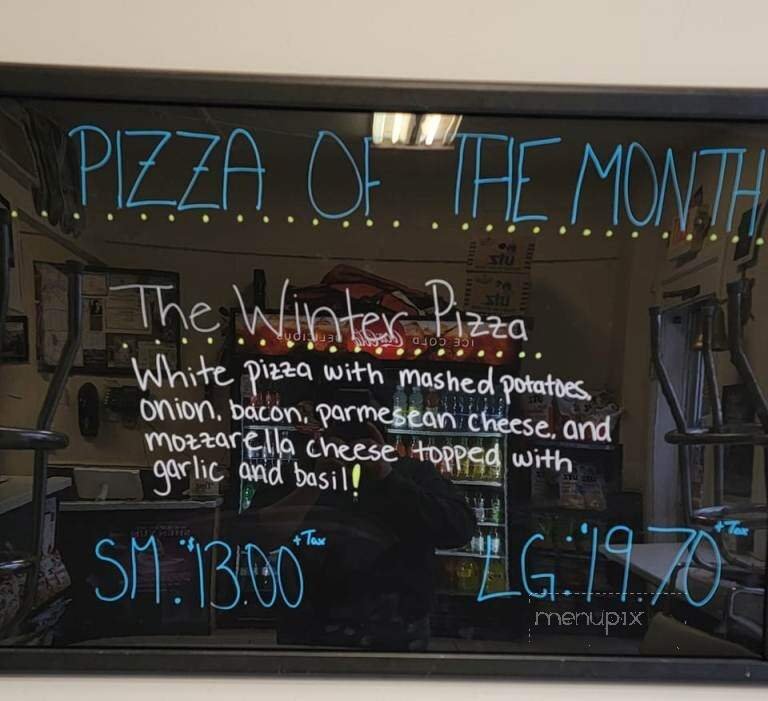 PIZZA OF THE MONTH
utz
utz
The Winter Pizza
ICE COLD Coca-Cola DELICIOUS
White pizza with mashed potatoes,
onion, bacon, parmesean cheese, and
mozzarella cheese topped with
garlic and basil!
SM. $13.00 + Tax
LG. $19.70 + Tax
menupix